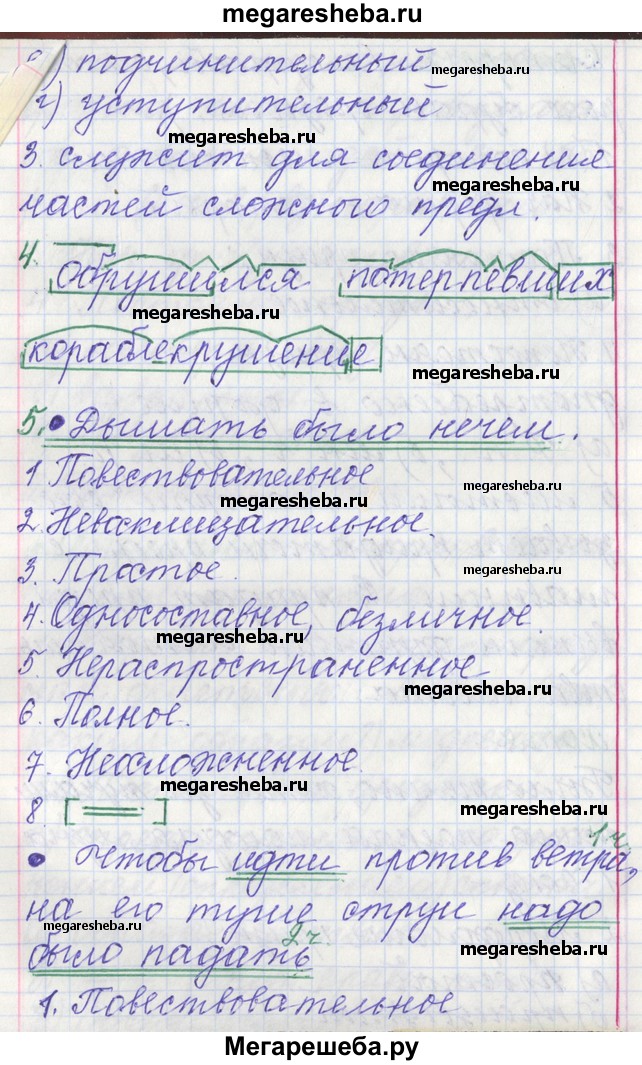 megaresheba.ru
в) подчинительный
megaresheba.ru
г) уступительный
megaresheba.ru
3. служит для соединения
megaresheba.ru
частей сложного предл.
4. обрушился потерпевших
megaresheba.ru
кораблекрушение
5. • Дышать было нечем.
1 Повествовательное
megaresheba.ru
megaresheba.ru
2. Невосклицательное.
3. Простое.
megaresheba.ru
4. Односоставное, безличное.
megaresheba.ru
5. Нераспространенное
megaresheba.ru
6. Полное.
7. Неосложненное.
megaresheba.ru
8. [ ]
megaresheba.ru
1 ч.
• Чтобы идти против ветра,
на его тугие струи надо
megaresheba.ru
2 ч.
было падать
megaresheba.ru
1. Повествовательное
Мегарешеба.ру